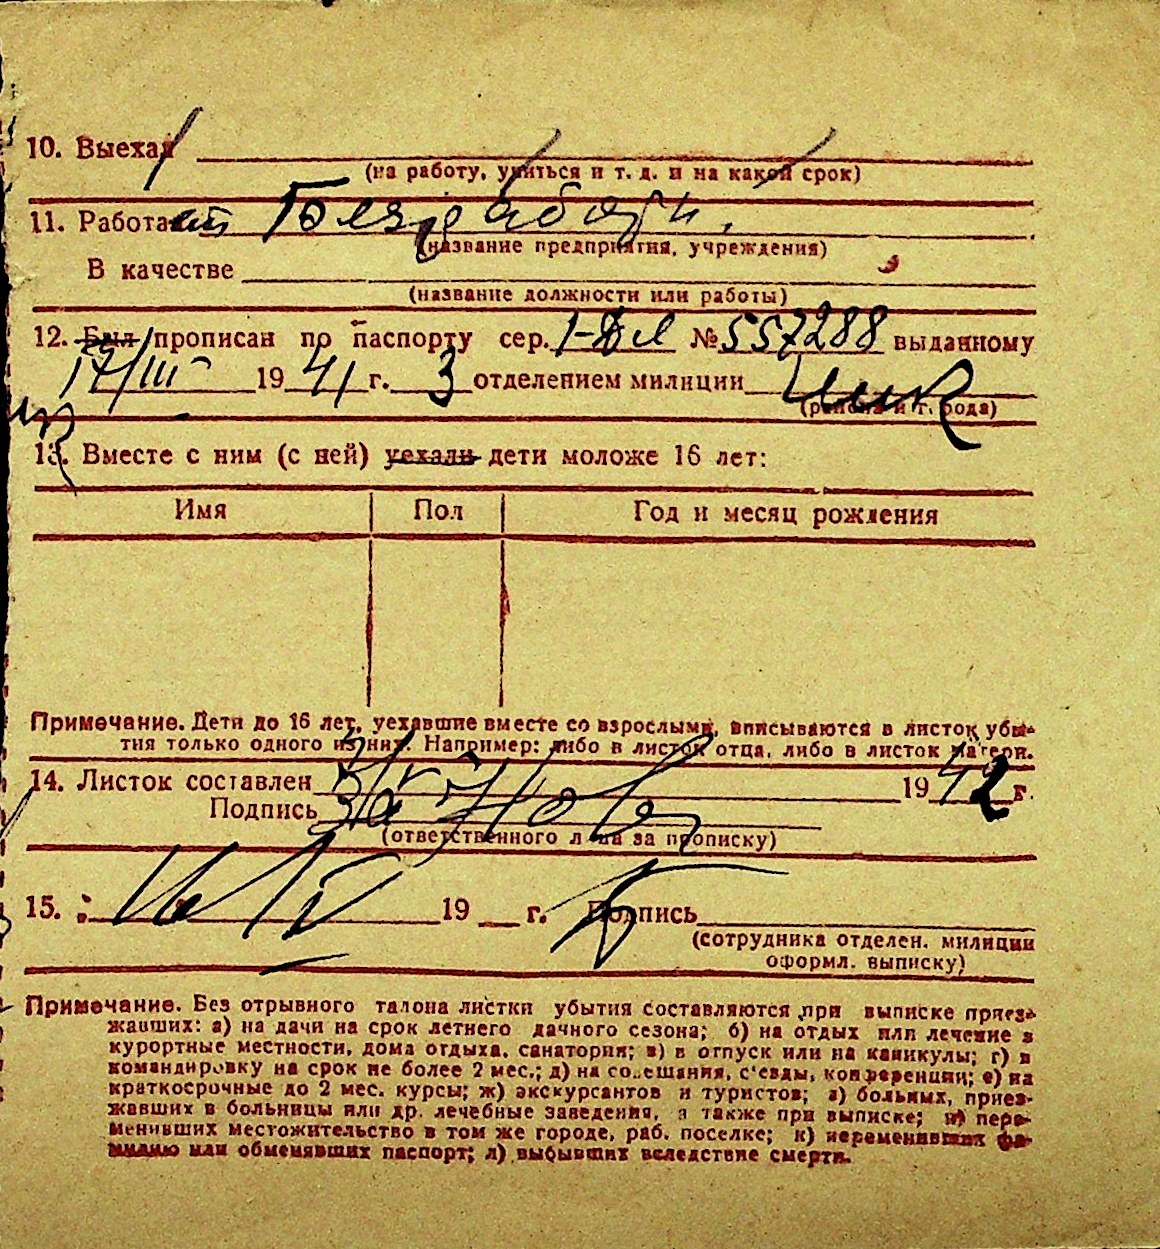 10. Выехал
(на работу, учиться и т. д. и на какой срок)
11. Работает
(название предприятия, учреждения)
В качестве
(название должности или работы)
12. Был прописан по паспорту сер. № 557288 выданному
17/III 1941 г. 3 отделением милиции
(района и города)
13. Вместе с ним (с ней) уехали дети моложе 16 лет:
Имя Пол Год и месяц рождения
Примечание. Дети до 16 лет, уехавшие вместе со взрослыми, вписываются в листок убы-
тия только одного из них. Например: либо в листок отца, либо в листок матери.
14. Листок составлен 1942 г.
Подпись
(ответственного лица за прописку)
15. 19 г. Подпись
(сотрудника отделен. милиции
оформл. выписку)
Примечание. Без отрывного талона листки убытия составляются при выписке приез-
жавших: а) на дачи на срок летнего дачного сезона; б) на отдых или лечение в
курортные местности, дома отдыха, санатории; в) в отпуск или на каникулы; г) в
командировку на срок не более 2 мес.; д) на совещания, с'езды, конференции; е) на
краткосрочные до 2 мес. курсы; ж) экскурсантов и туристов; з) больных, приез-
жавших в больницы или др. лечебные заведения, а также при выписке; и) пере-
менивших местожительство в том же городе, раб. поселке; к) переменивших фа-
милию или обменявших паспорт; л) выбывших вследствие смерти.